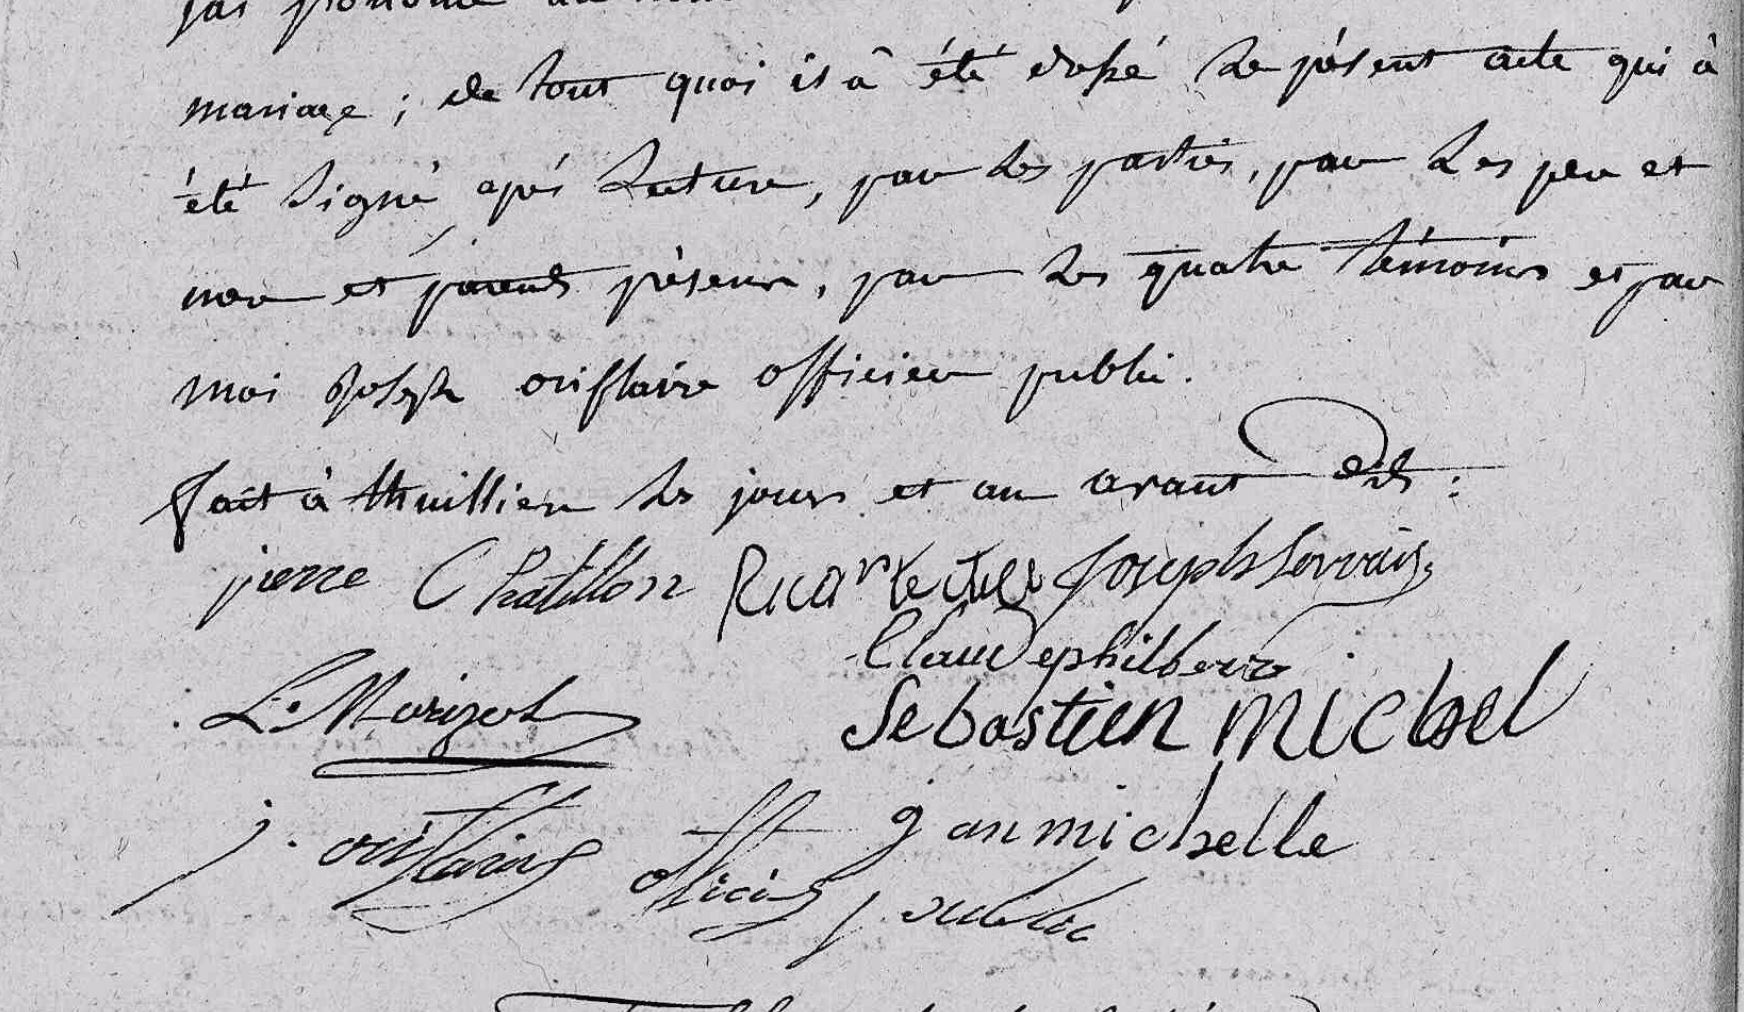 jai prononcé au nom
mariage ; de tout quoi il a été dressé le présent acte qui à
été signé après lecture, par les parties, par les pere et
mere et parents présens, par les quatre témoins et par
moi Joseph oriflaire officier public.
fait à thuillier les jours et an avant dits :
pierre Chatillon Joseph
Claude philbert
L. Morizot Sebastien michel
j. oriflaire officier public
janmichelle